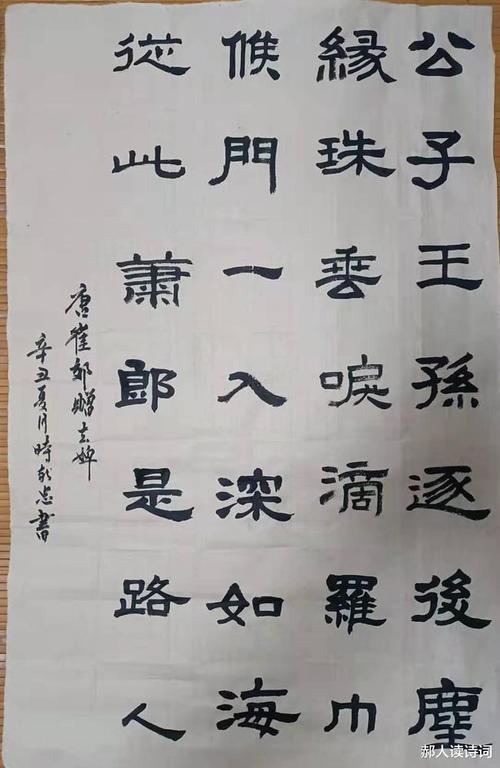 公子王孫逐後塵
緣珠垂唳滴羅巾
候門一入深如海
從此蕭郎是路人
唐崔郊贈去婢
辛丑夏月時
書
郝人读诗词